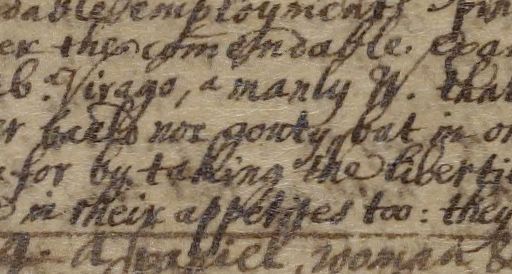 dable employments
er the comendable. exam
b. Virago, a manly W. that
er bald nor gouty, but in
for by taking the liberti
in their appetites too: they
a woman &